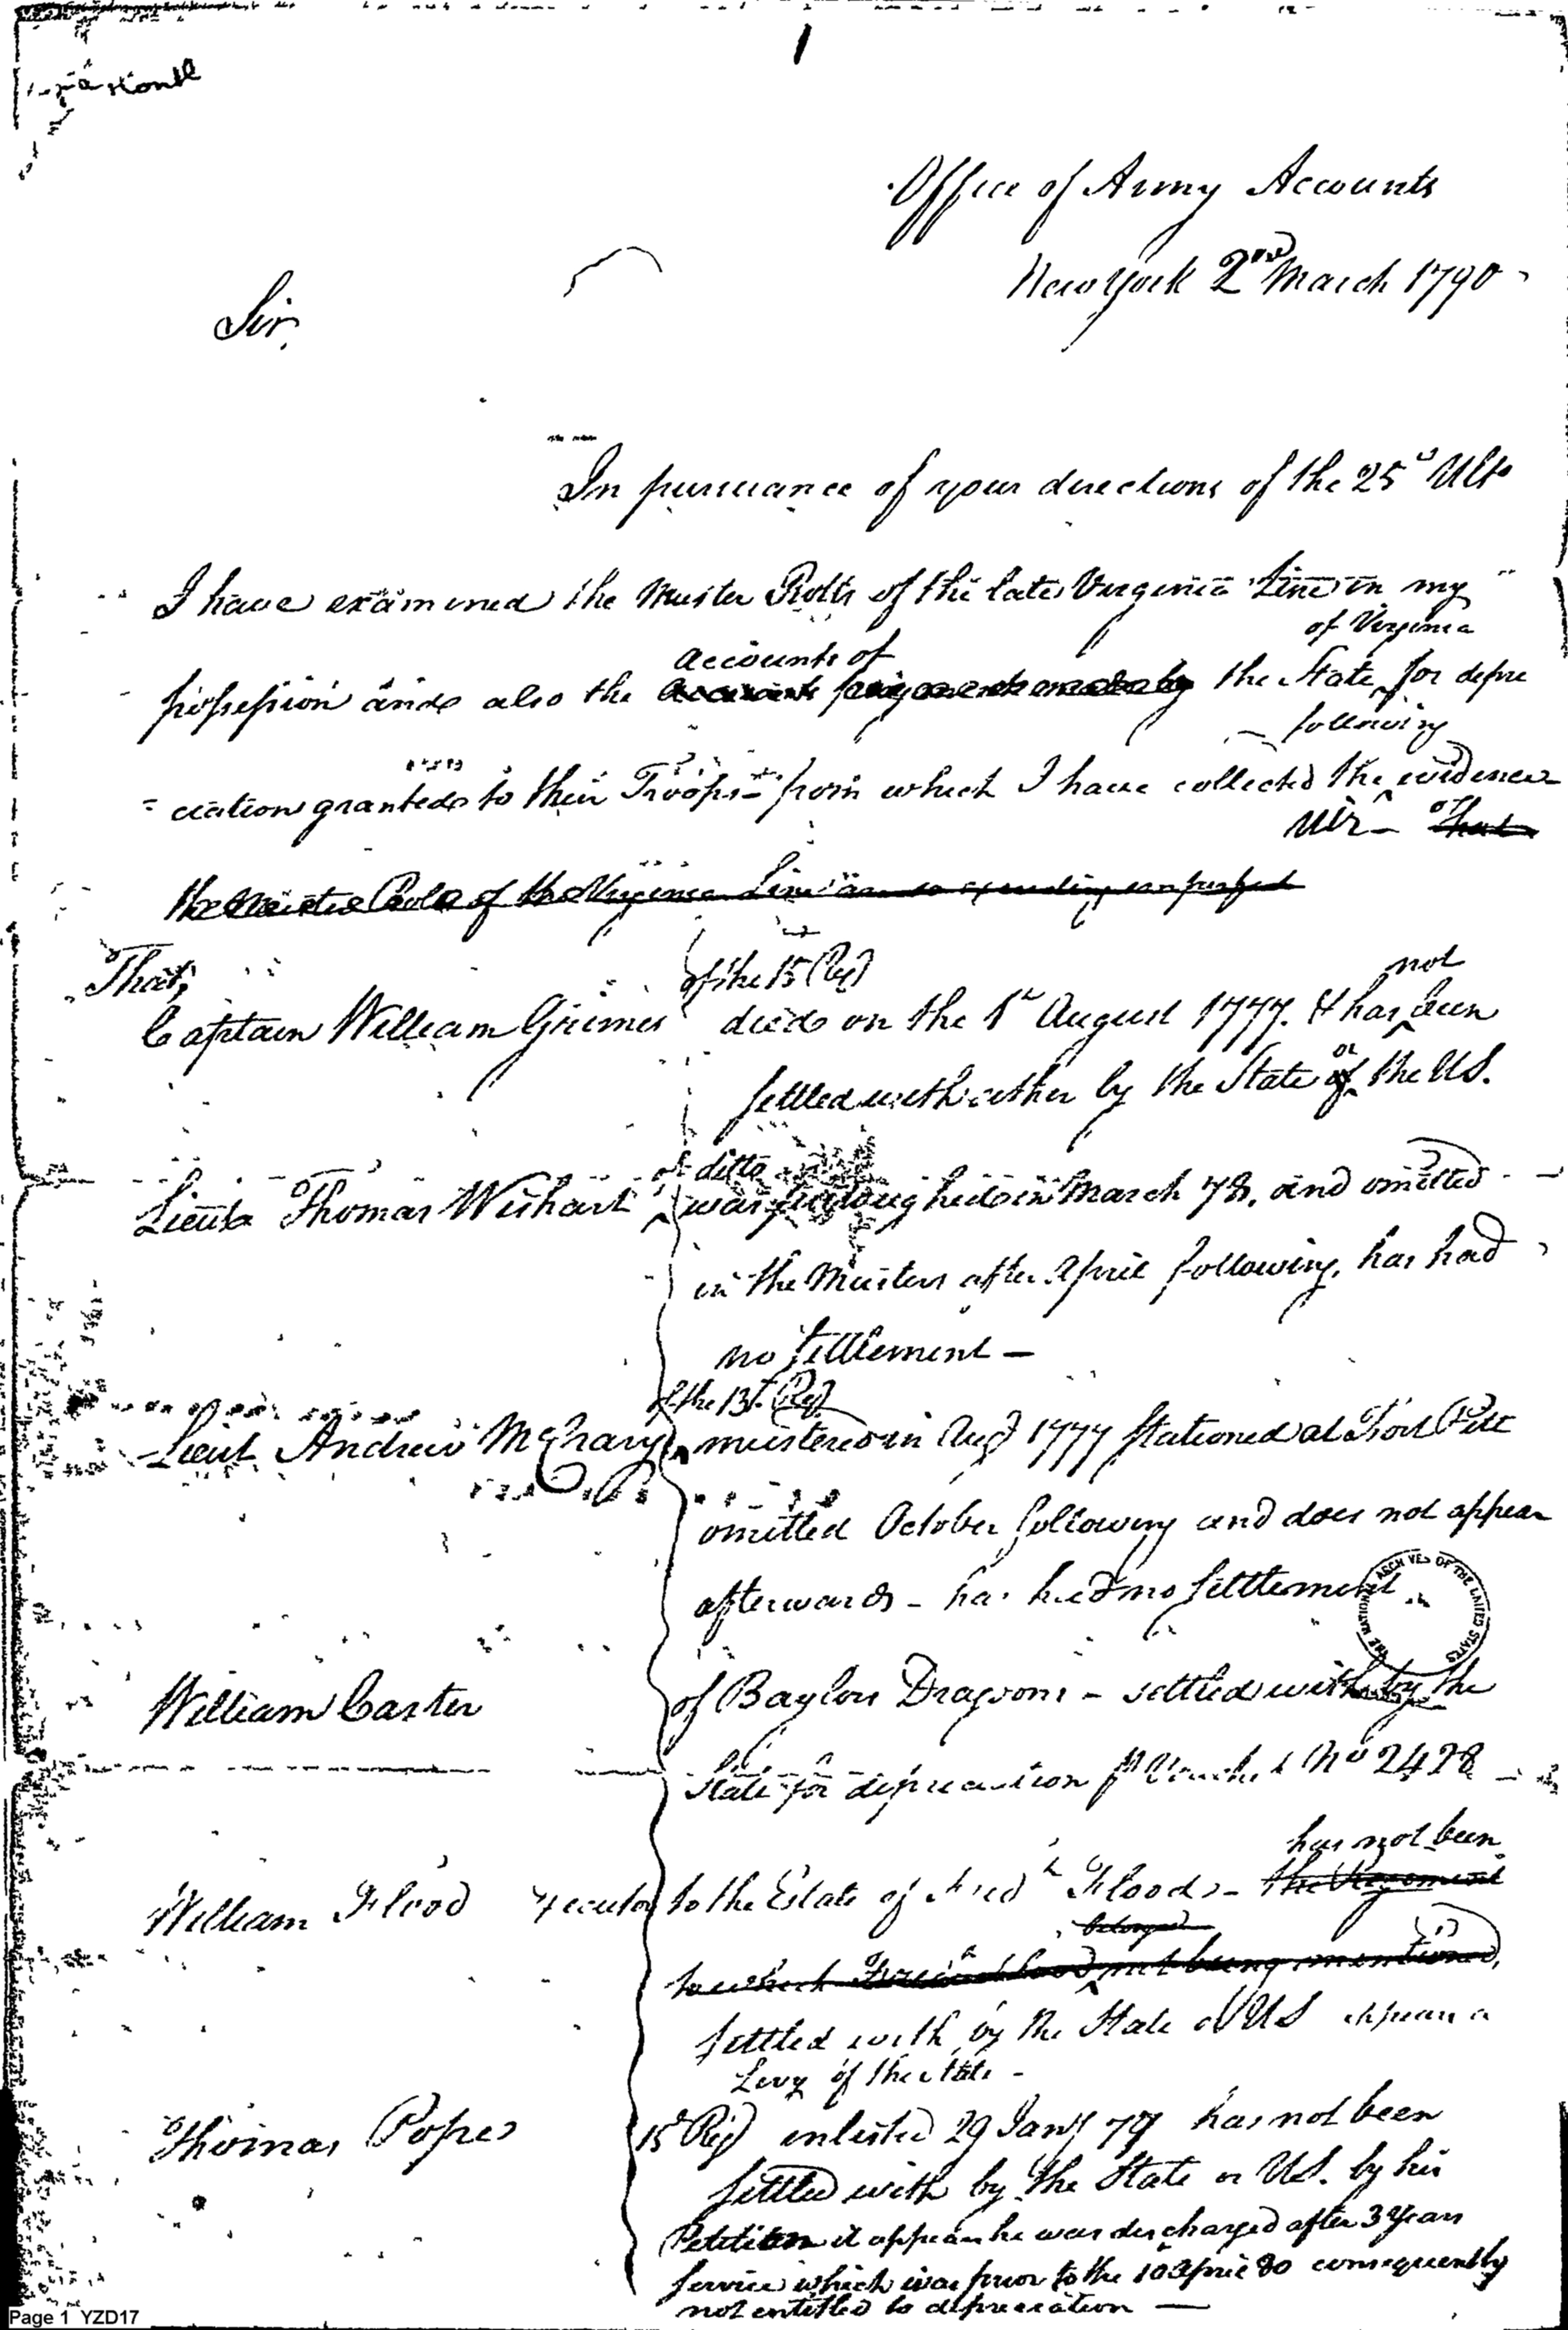 1
Office of Army Accounts
New York 2nd March 1790
Sir,
In pursuance of your directions of the 25th Ulto
I have examined the Muster Rolls of the late Virginia Line in my
of Virginia
accounts of
possession and also the accounts payments made by the State for depre
following
ciation granted to their Troops - from which I have collected the evidence
Viz - That
the Muster Rolls of the Virginia Line are so exceeding imperfect
That,
of the 15 Reg
not
Captain William Grimes died on the 1st August 1777. & has been
or
settled with either by the State of the US.
of ditto
Lieut Thomas Wishart was furloughed in March 78, and omitted
in the Musters after April following, has had
no settlement -
of the 13th Reg
Lieut Andrew McCrary mustered in Augt 1777 stationed at Fort Pitt
omitted October following and does not appear
afterwards - has had no settlement
THE NATIONAL ARCHIVES OF THE UNITED STATES
William Carter of Baylors Dragoons - settled with by the
State for depreciation pr Voucher No 2428
has not been
William Flood Executor to the Estate of Fredk Flood - the Regiment
belonged
to which Fredk Flood not being mentioned,
settled with by the State or US appears a
Levy of the State -
Thomas Pope 15 Reg enlisted 29 Jany 77 has not been
settled with by the State or US. by his
Petition it appears he was discharged after 3 Years
service which was prior to the 10 April 80 consequently
not entitled to depreciation —
Page 1 YZD17